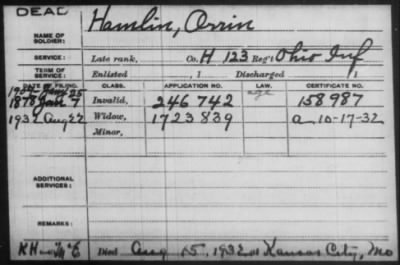 DEAD
NAME OF SOLDIER: Hamlin, Orrin
SERVICE: Late rank, Co. H 123 Reg't Ohio Inf
TERM OF SERVICE: Enlisted , 1 Discharged , 1
DATE OF FILING. CLASS. APPLICATION NO. LAW. CERTIFICATE NO.
age
1878 7 Invalid, 246 742 158987
1932 Aug 27 Widow, 1723839 a-10-17-32
Minor,
ADDITIONAL SERVICES:
REMARKS:
Died Aug 15, 1932 at Kansas City, Mo